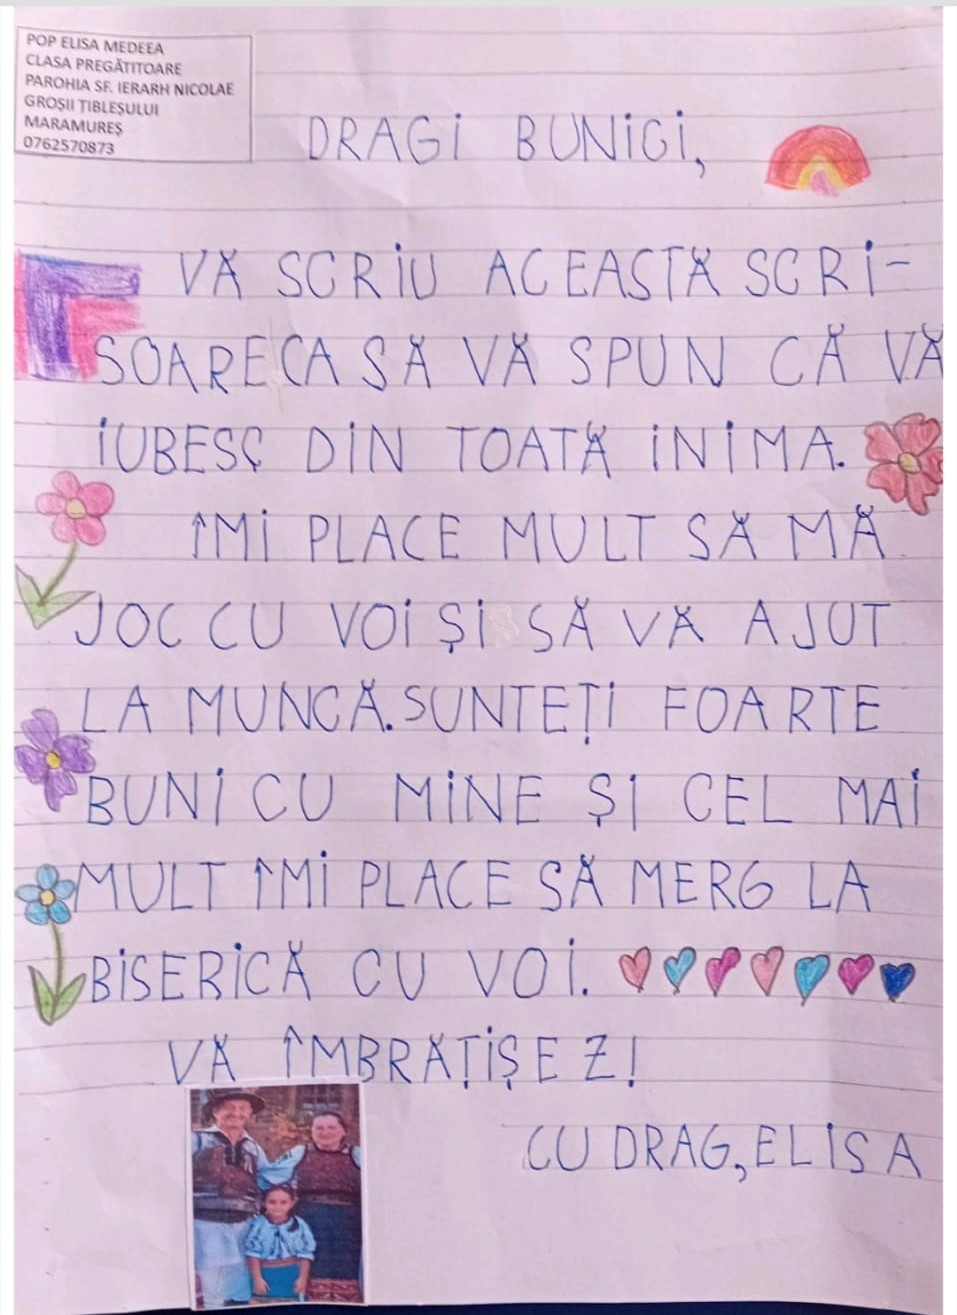 POP ELISA MEDEEA
CLASA PREGĂTITOARE
PAROHIA SF. IERARH NICOLAE
GROȘII ȚIBLEȘULUI
MARAMUREȘ
0762570873
DRAGI BUNICI,
VĂ SCRIU ACEASTĂ SCRI-
SOARE CA SĂ VĂ SPUN CĂ VĂ
IUBESC DIN TOATĂ INIMA.
ÎMI PLACE MULT SĂ MĂ
JOC CU VOI ȘI SĂ VĂ AJUT
LA MUNCĂ. SUNTEȚI FOARTE
BUNI CU MINE ȘI CEL MAI
MULT ÎMI PLACE SĂ MERG LA
BISERICĂ CU VOI.
VĂ ÎMBRĂȚIȘEZ!
CU DRAG, ELISA